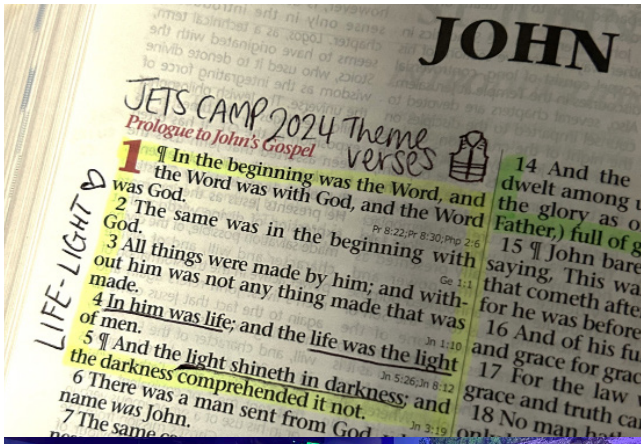 JOHN
JETS CAMP 2024 Theme
verses
Prologue to John's Gospel
LIFE-LIGHT
1 ¶ In the beginning was the Word, and
the Word was with God, and the Word
was God.
Pr 8:22; Pr 8:30; Php 2:6
2 The same was in the beginning with
God.
Ge 1:1
3 All things were made by him; and with-
out him was not any thing made that was
made.
Jn 1:10
4 In him was life; and the life was the light
of men.
Jn 5:26; Jn 8:12
5 ¶ And the light shineth in darkness; and
the darkness comprehended it not.
6 There was a man sent from God
Jn 3:19
name was John.
7 The same
14 And the
dwelt among
the glory as
Father,) full of
15 ¶ John bare
saying, This wa
that cometh after
for he was before
16 And of his fu
and grace for grac
17 For the law
grace and truth ca
18 No man